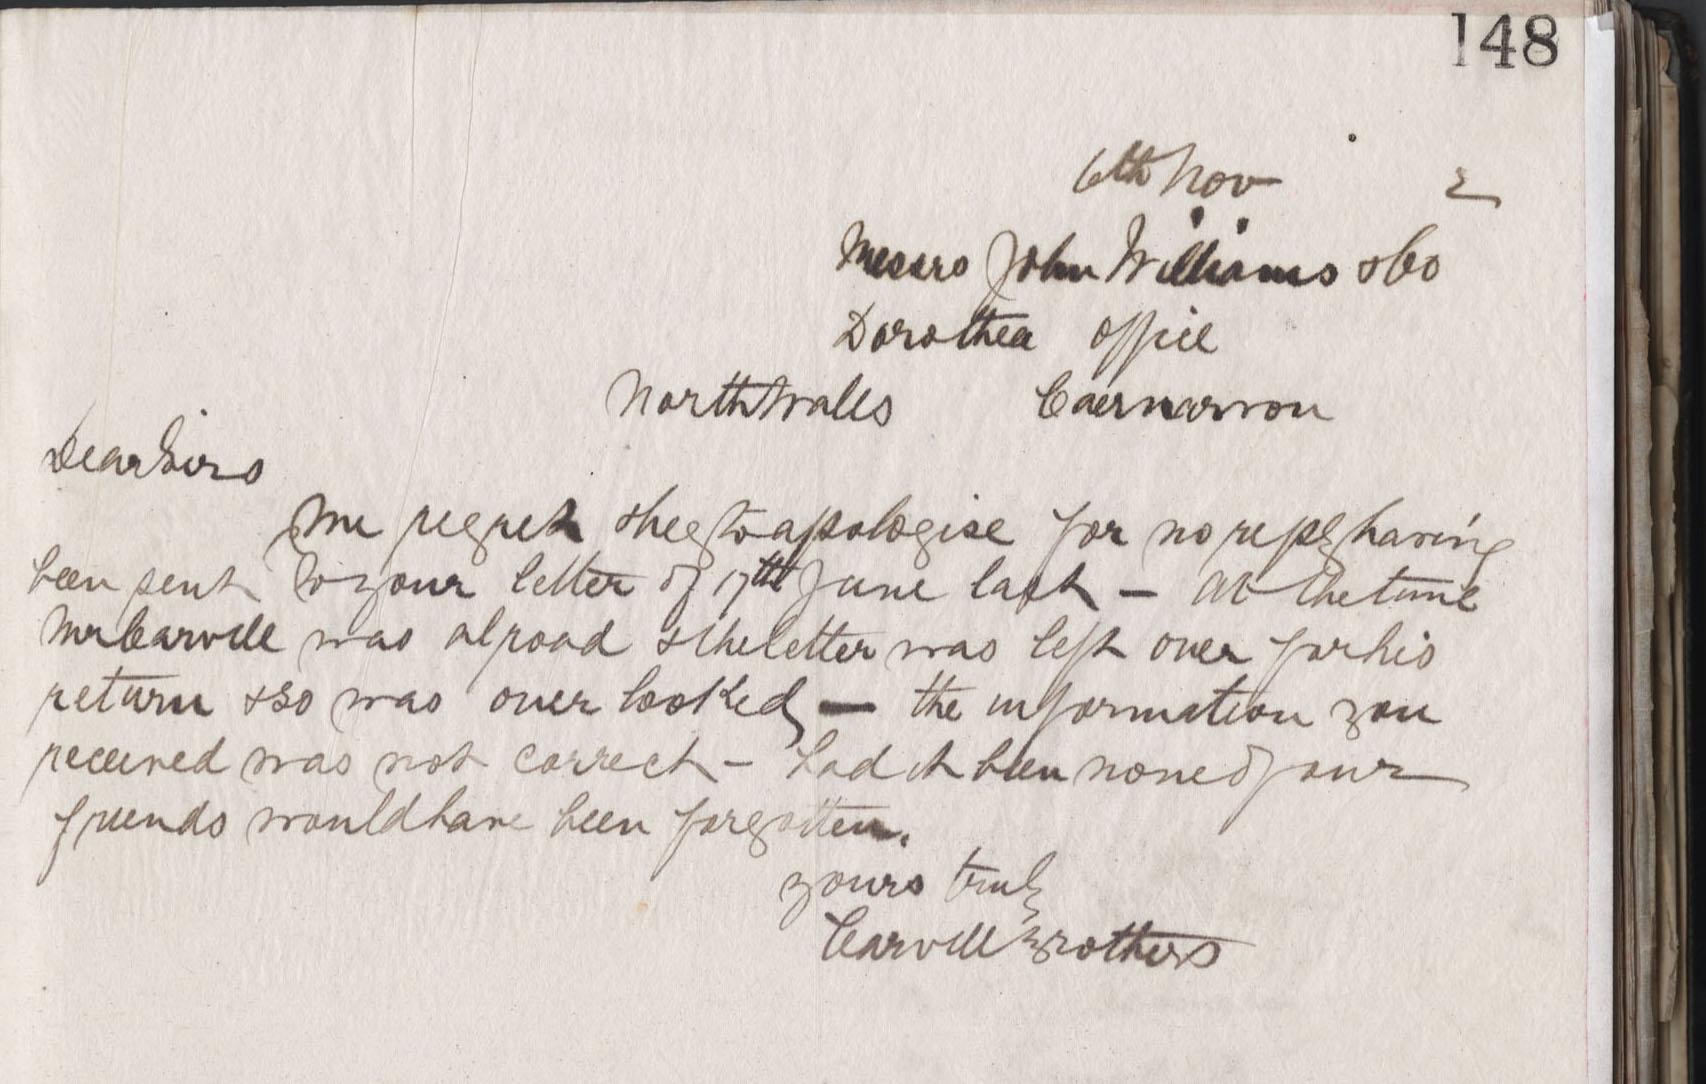 148
6th Nov 2
Messrs John Williams & Co
Dorothea Office
North Wales Caernarvon
Dear Sirs
We regret & beg to apologise for no reply having
been sent to your letter of 17th June last – At the time
Mr Carvill was abroad & the letter was left over for his
return & so was over looked – the information you
received was not correct – had it been none of our
friends would have been forgotten.
yours truly
Carvill Brothers